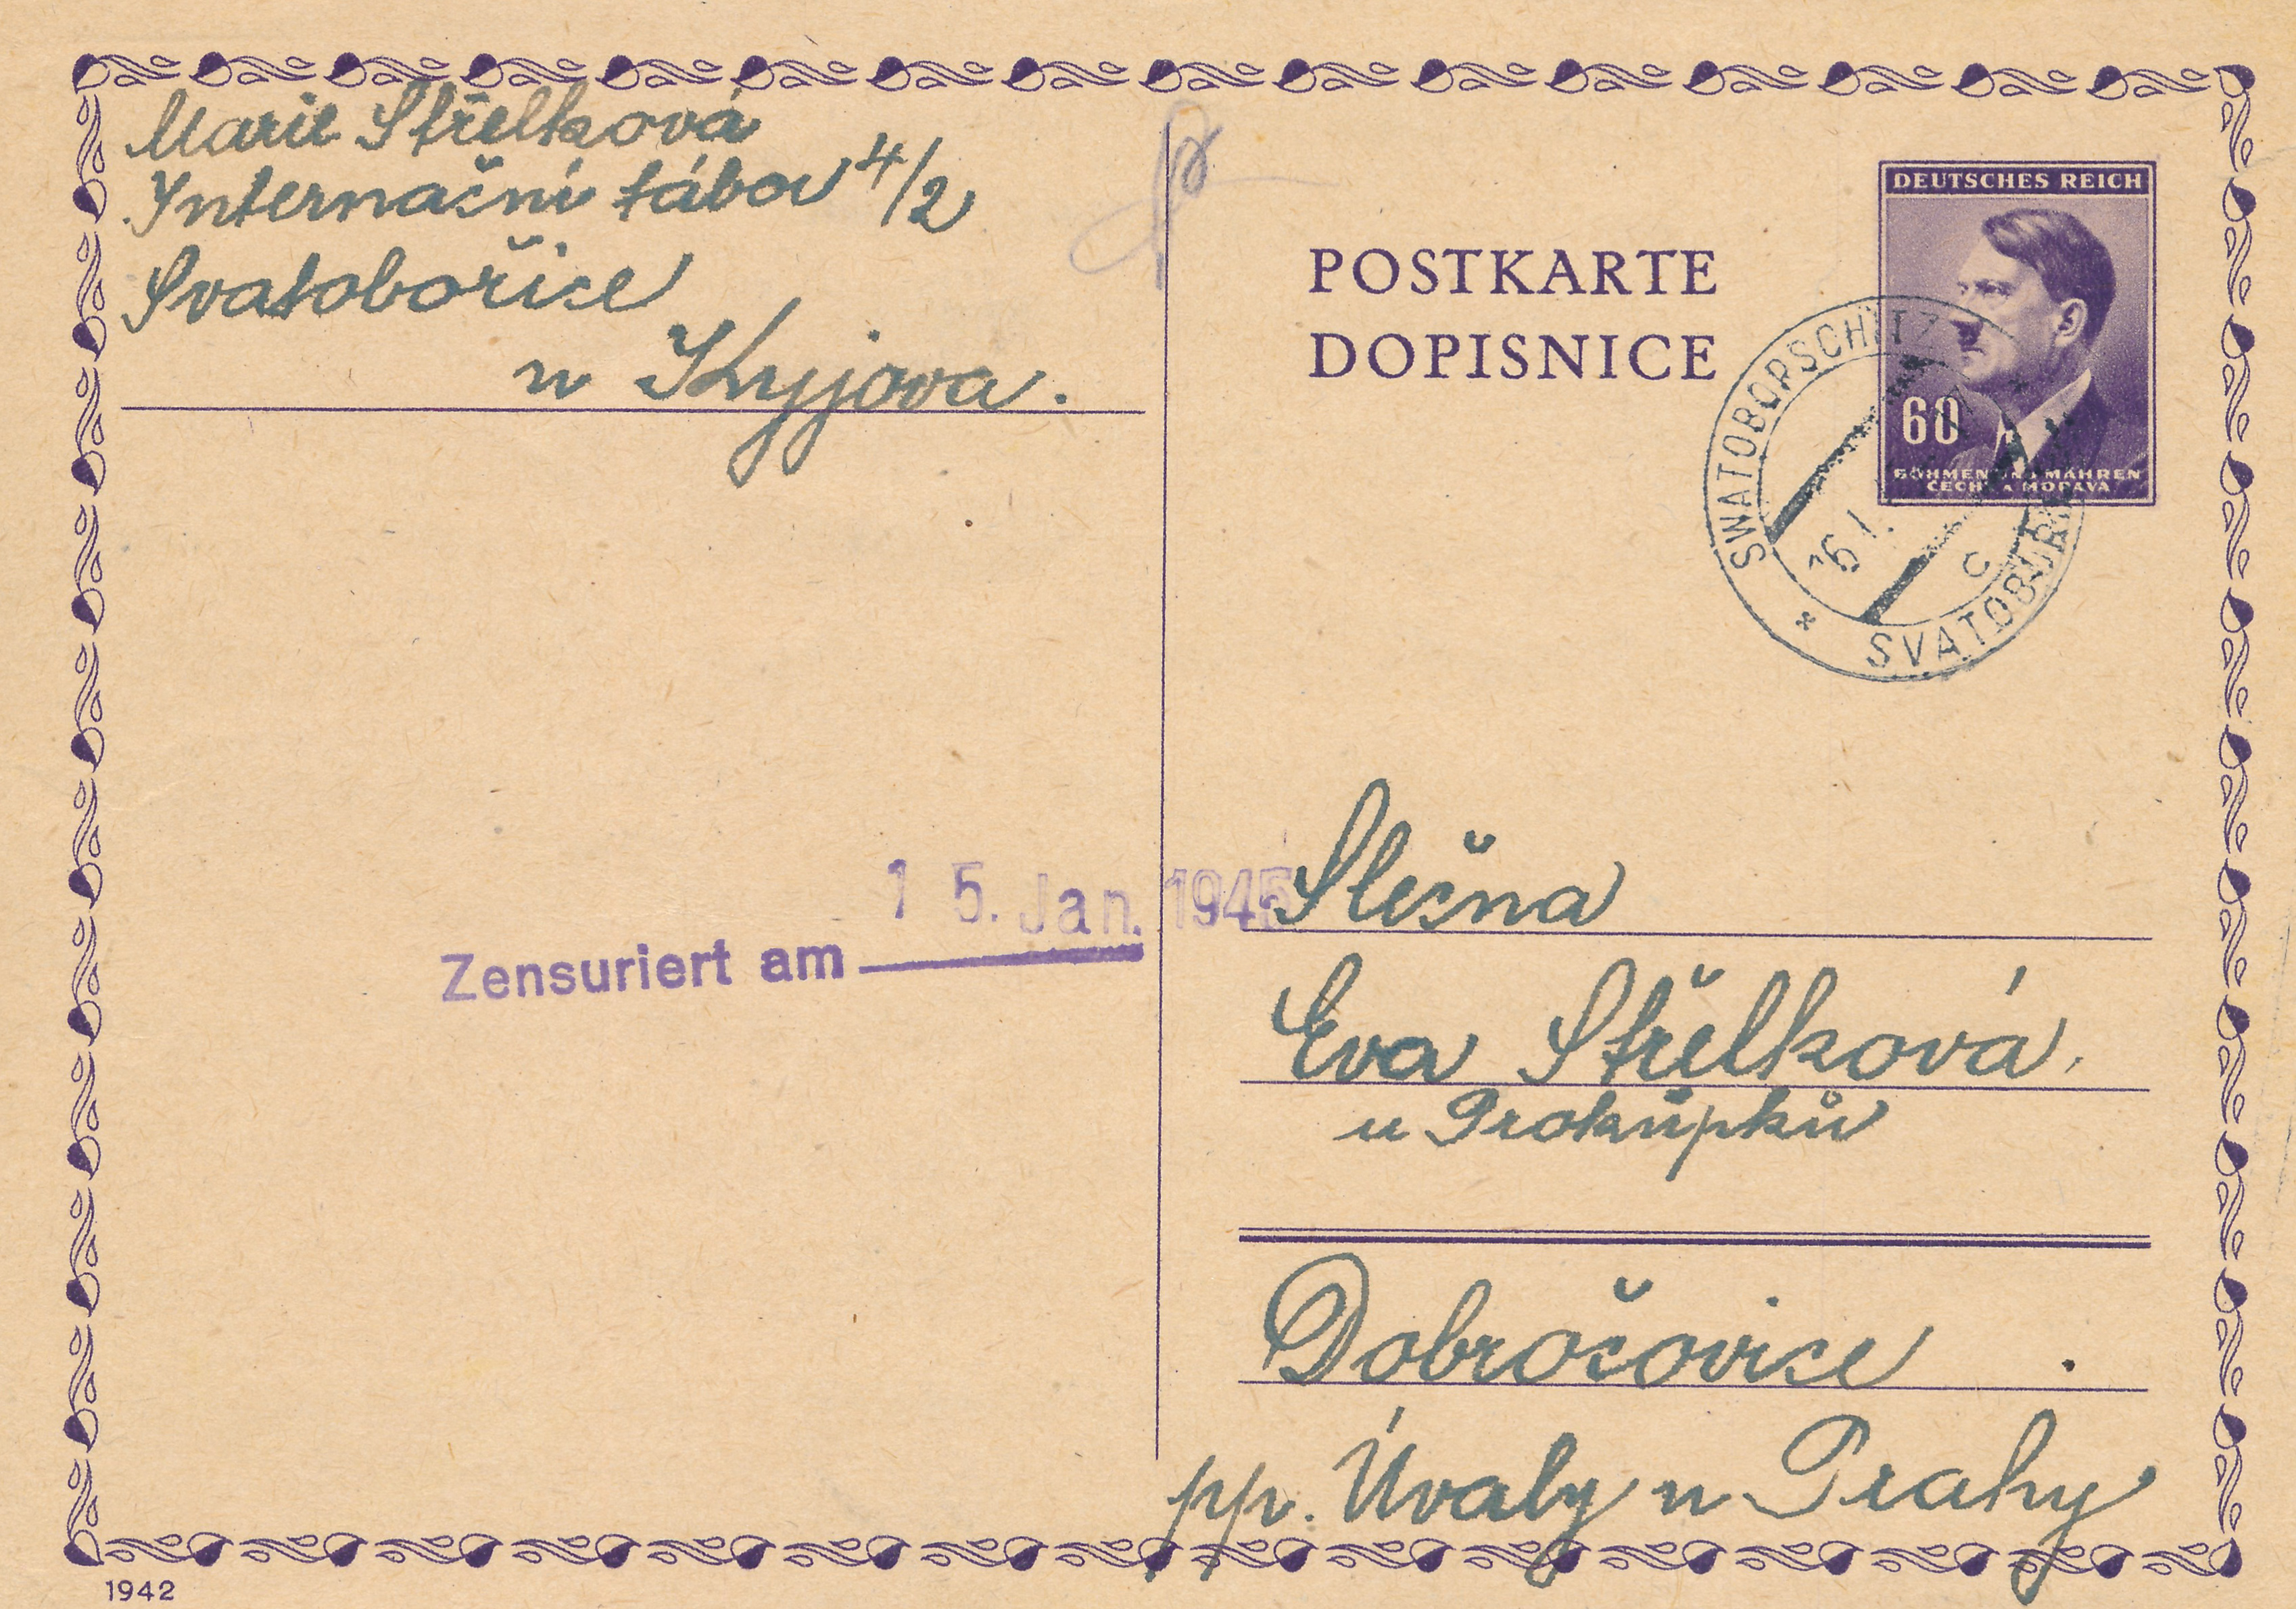 Marie Střelková
Internační tábor 4/2
Svatobořice
u Kyjova.
POSTKARTE
DOPISNICE
DEUTSCHES REICH
60
BÖHMEN UND MÄHREN
ČECHY A MORAVA
SWATOBORSCHITZ
16 I.
C
15. Jan. 1945
Zensuriert am
Slečna
Eva Střelková,
u Prokůpků
Dobročovice
pp. Úvaly u Prahy
1942